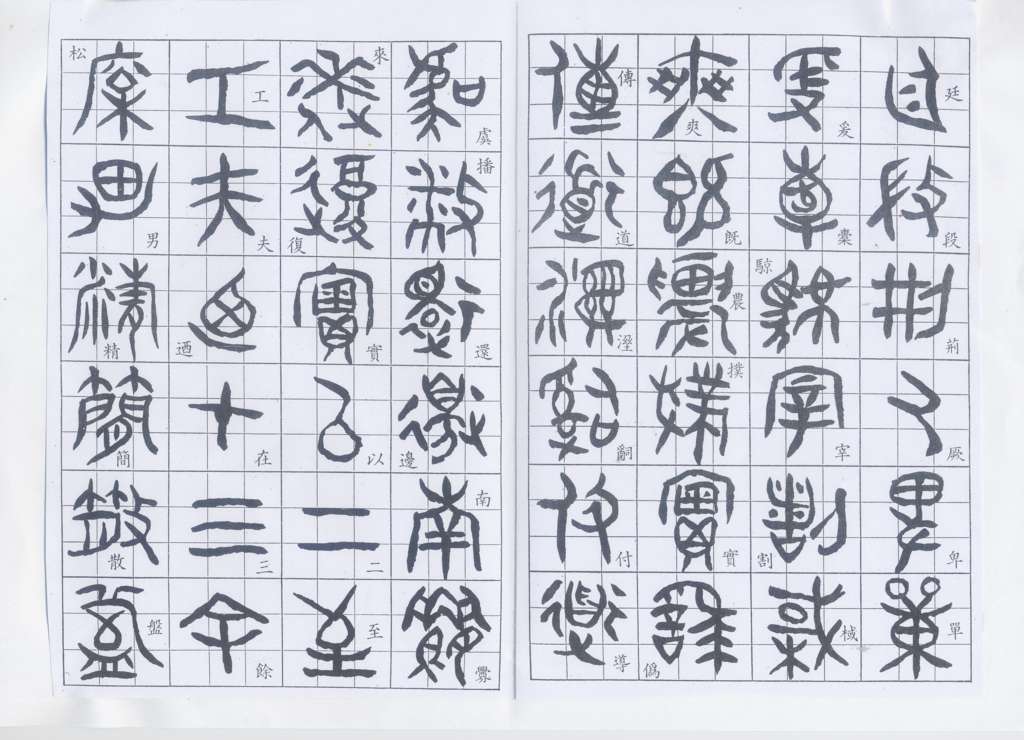 廷段荊厥卑單
爰橐宰割棫
爽既農撲實僞
傳道溼嗣付導
虞播還邊南
來復實以二至
工夫迺在三餘
松男精簡散盤